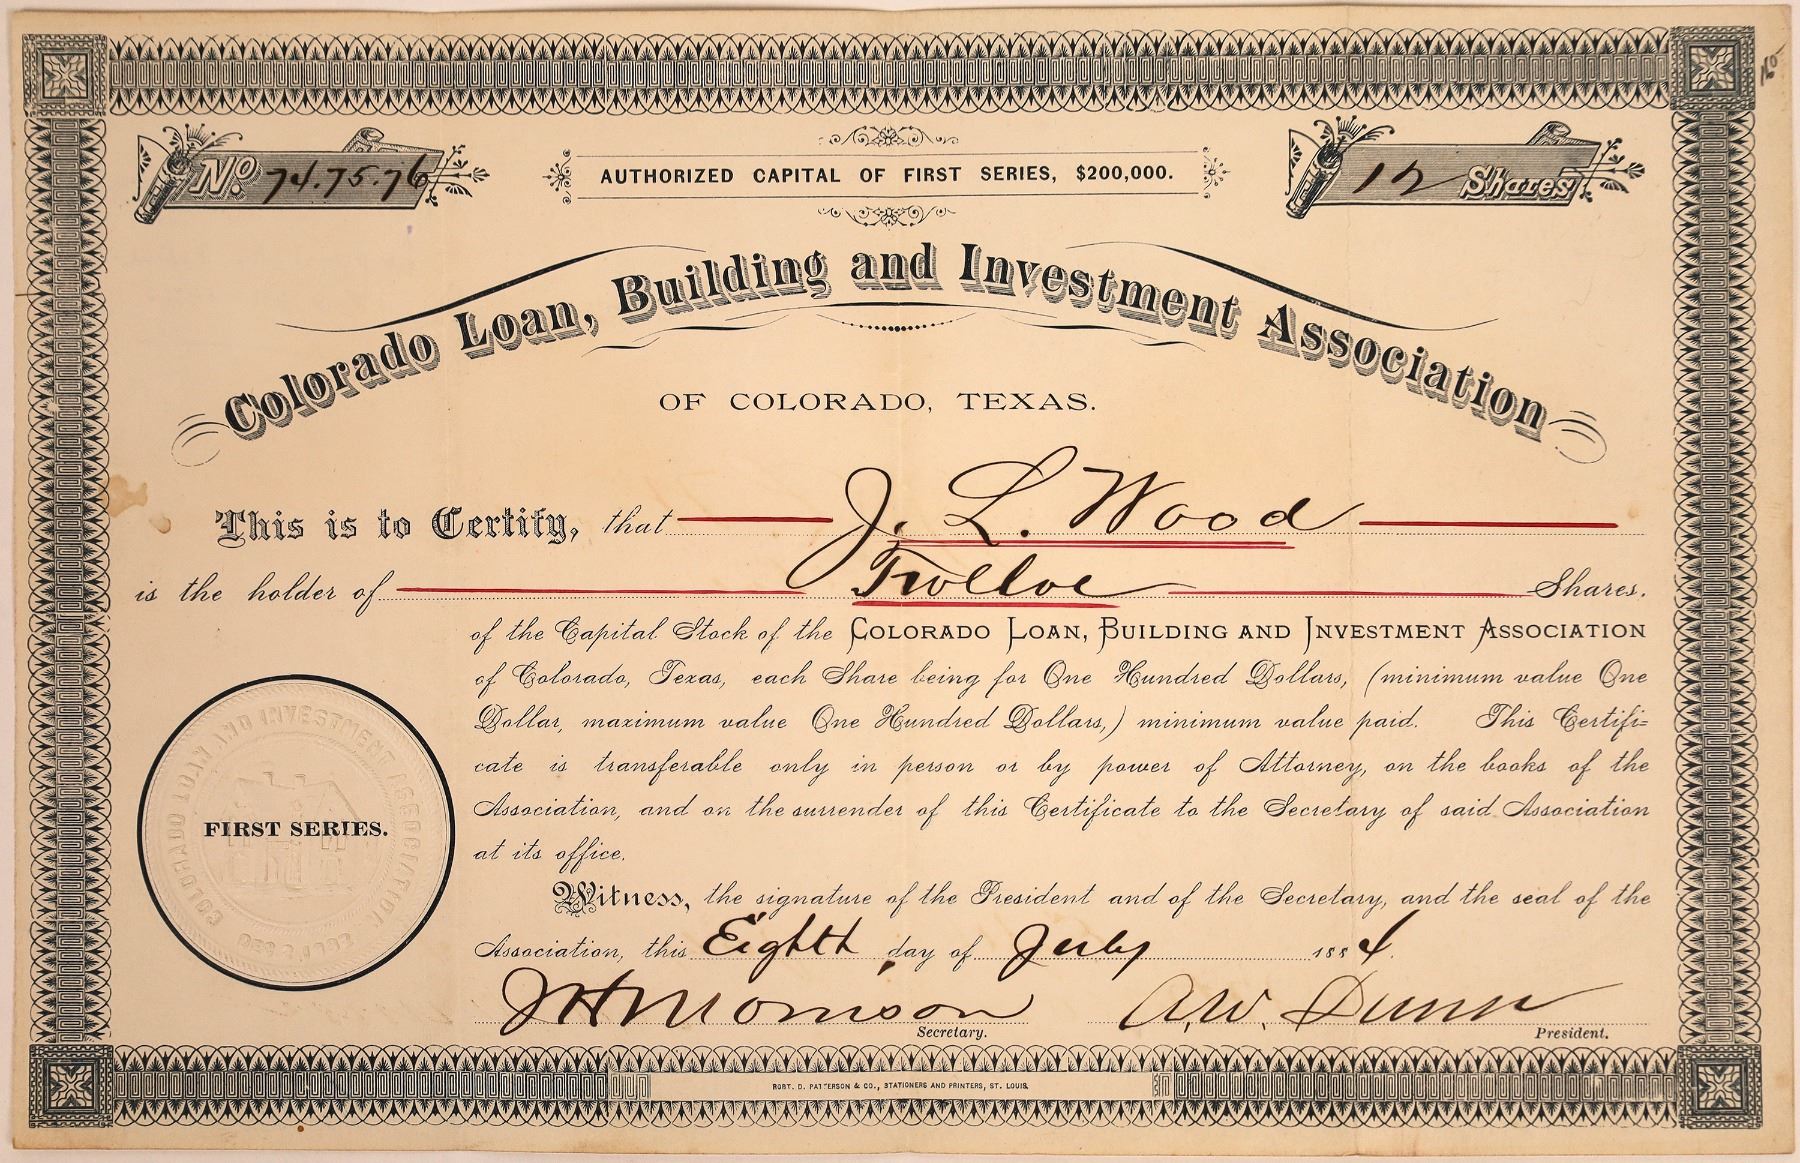 No. 74.75.76
AUTHORIZED CAPITAL OF FIRST SERIES, $200,000.
12 Shares
Colorado Loan, Building and Investment Association
OF COLORADO, TEXAS.
This is to Certify, that J. L. Wood
is the holder of Twelve Shares.
of the Capital Stock of the COLORADO LOAN, BUILDING AND INVESTMENT ASSOCIATION
of Colorado, Texas, each Share being for One Hundred Dollars, (minimum value One
Dollar, maximum value One Hundred Dollars,) minimum value paid. This Certifi-
cate is transferable only in person or by power of Attorney, on the books of the
Association, and on the surrender of this Certificate to the Secretary of said Association
at its office.
COLORADO LOAN AND INVESTMENT ASSOCIATION.
FIRST SERIES.
Witness, the signature of the President and of the Secretary, and the seal of the
Association, this Eighth day of July 1884.
J H Morrison A. W. Dunn
Secretary. President.
ROBT. D. PATTERSON & CO., STATIONERS AND PRINTERS, ST. LOUIS.